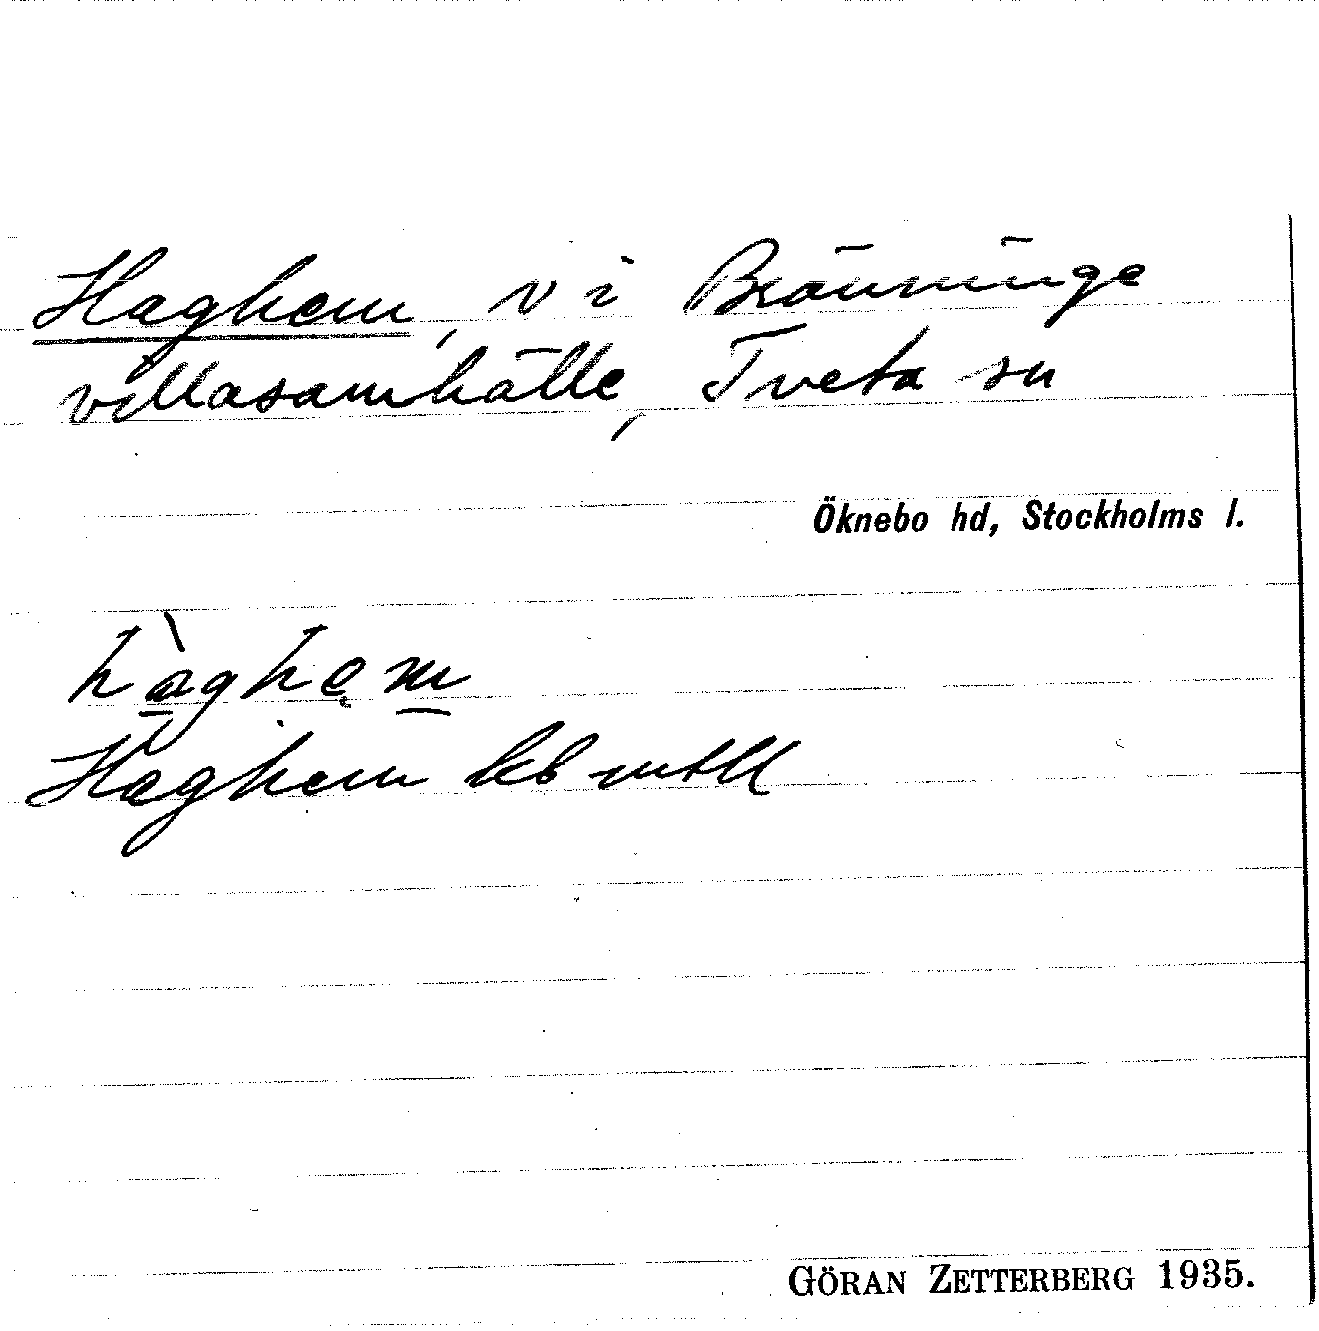 Haghem, v i Bränninge
villasamhälle, Tveta sn
Öknebo hd, Stockholms l.
hàghem
Haghem kb mtll
GÖRAN ZETTERBERG 1935.